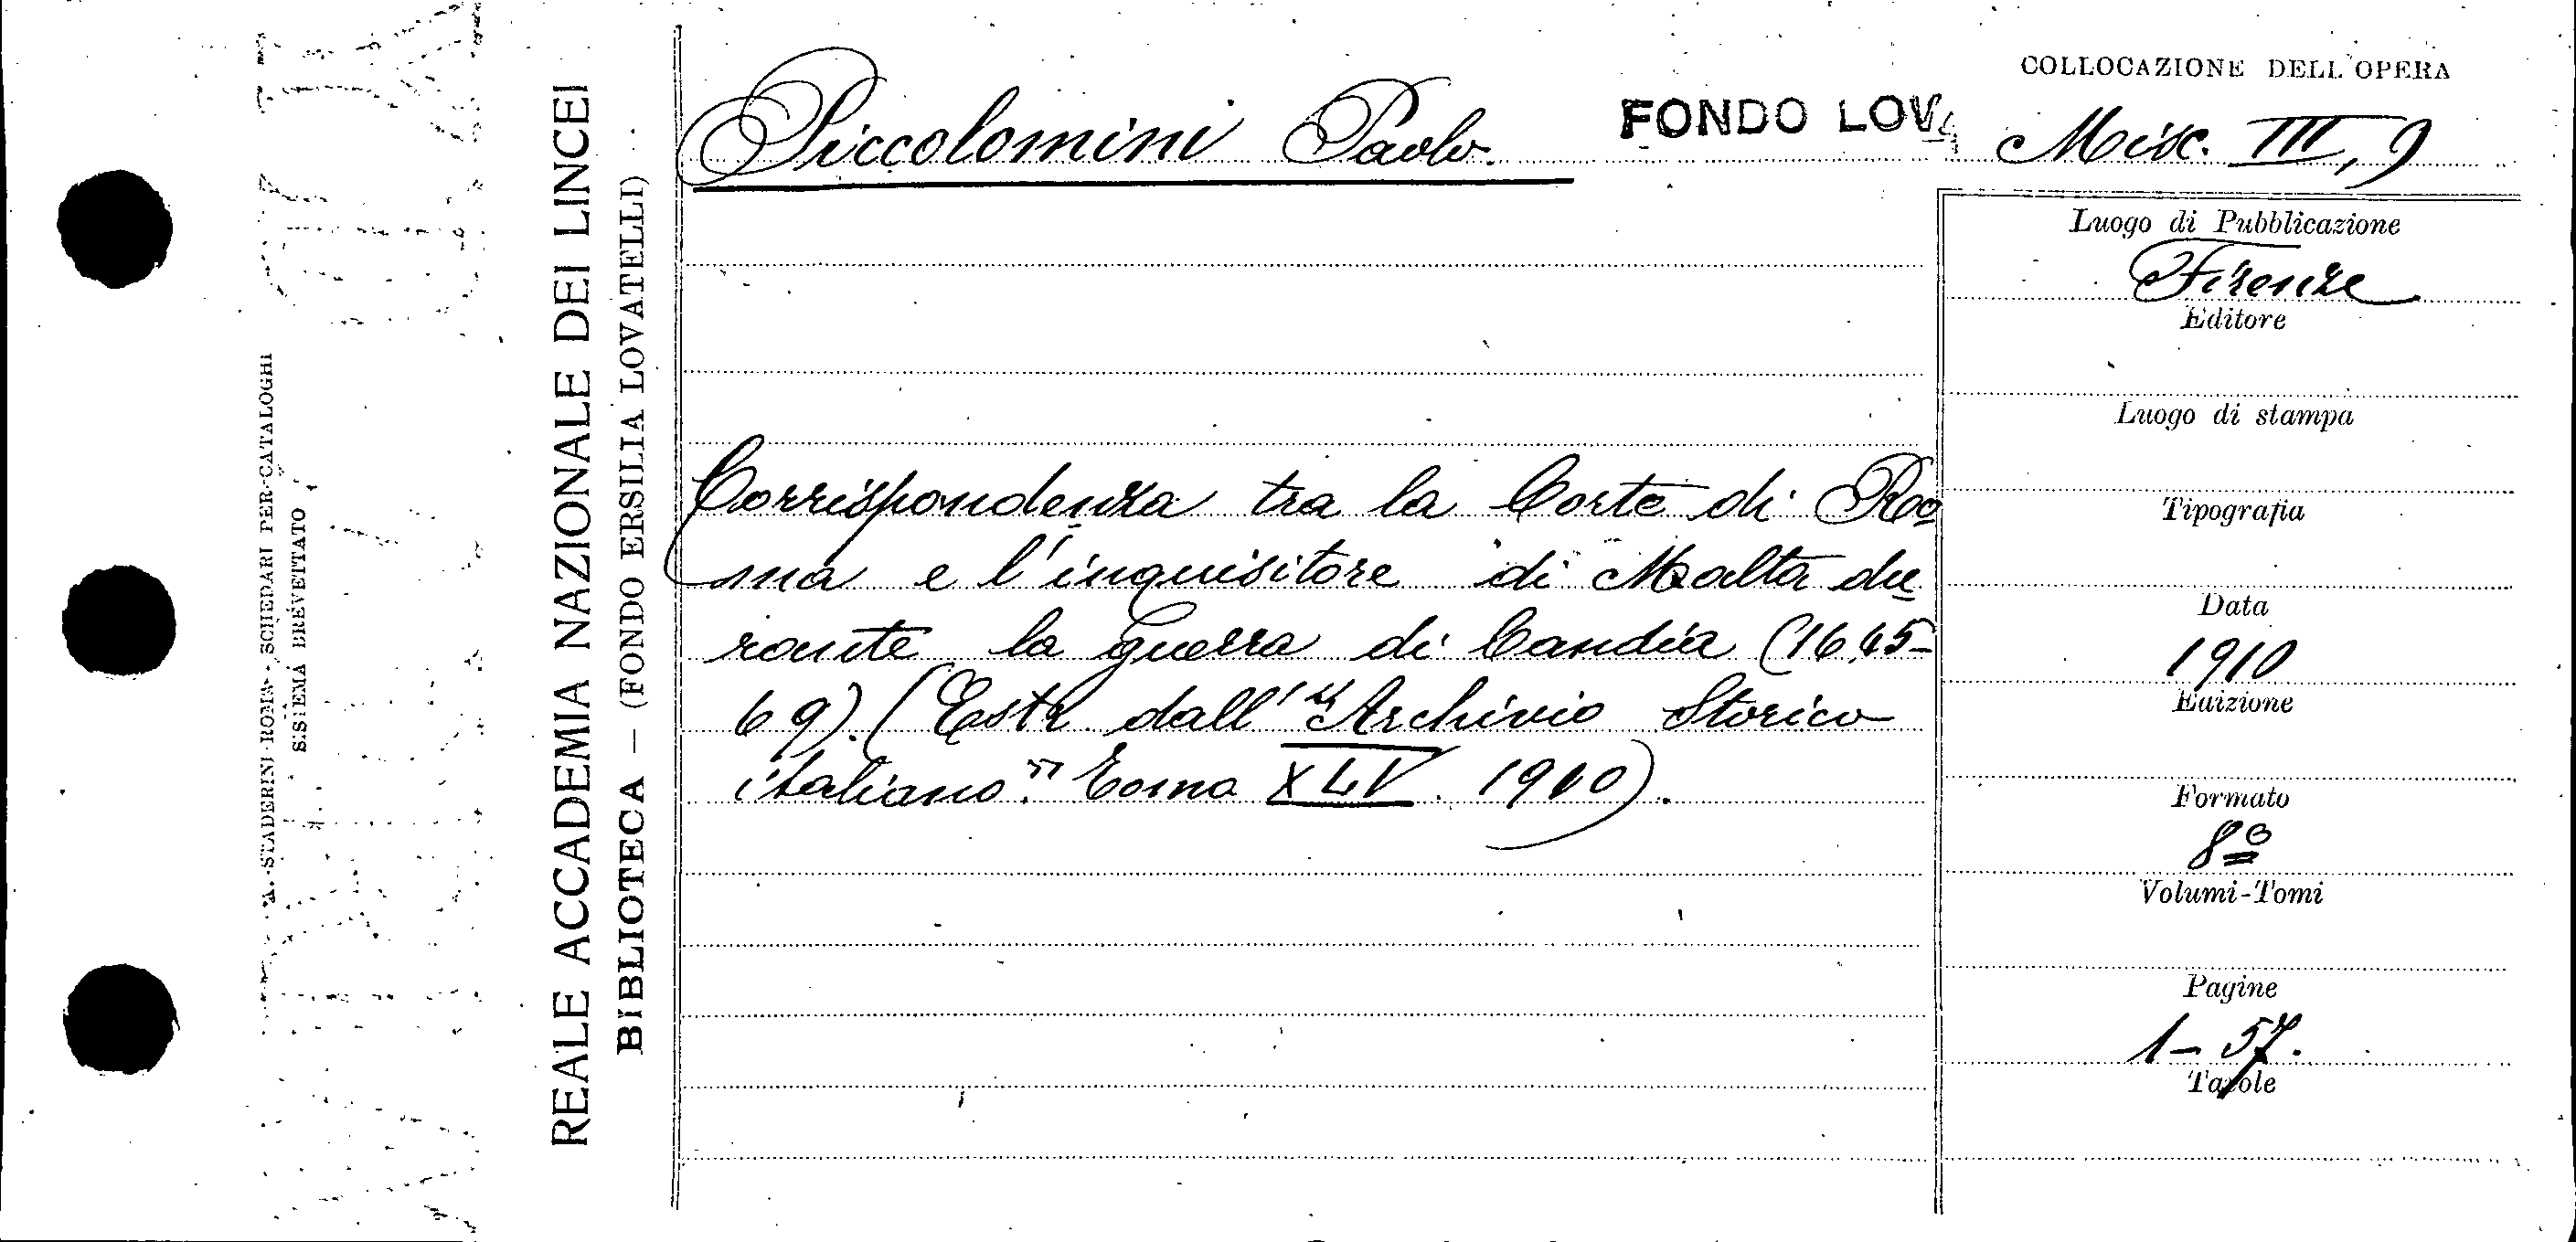 A. STADERINI - ROMA - SCHEDARI PER CATALOGHI
SISTEMA BREVETTATO
REALE ACCADEMIA NAZIONALE DEI LINCEI
BIBLIOTECA — (FONDO ERSILIA LOVATELLI)
Piccolomini Paolo
FONDO LOV
COLLOCAZIONE DELL'OPERA
Misc. III, 9
Corrispondenza tra la Corte di Ro
ma e l'inquisitore di Malta du
rante la guerra di Candia (1645-
69). (Estr. dall' "Archivio Storico
italiano". Tomo XLV. 1910).
Luogo di Pubblicazione
Firenze
Editore
Luogo di stampa
Tipografia
Data
1910
Edizione
Formato
8º
Volumi-Tomi
Pagine
1-57.
Tavole